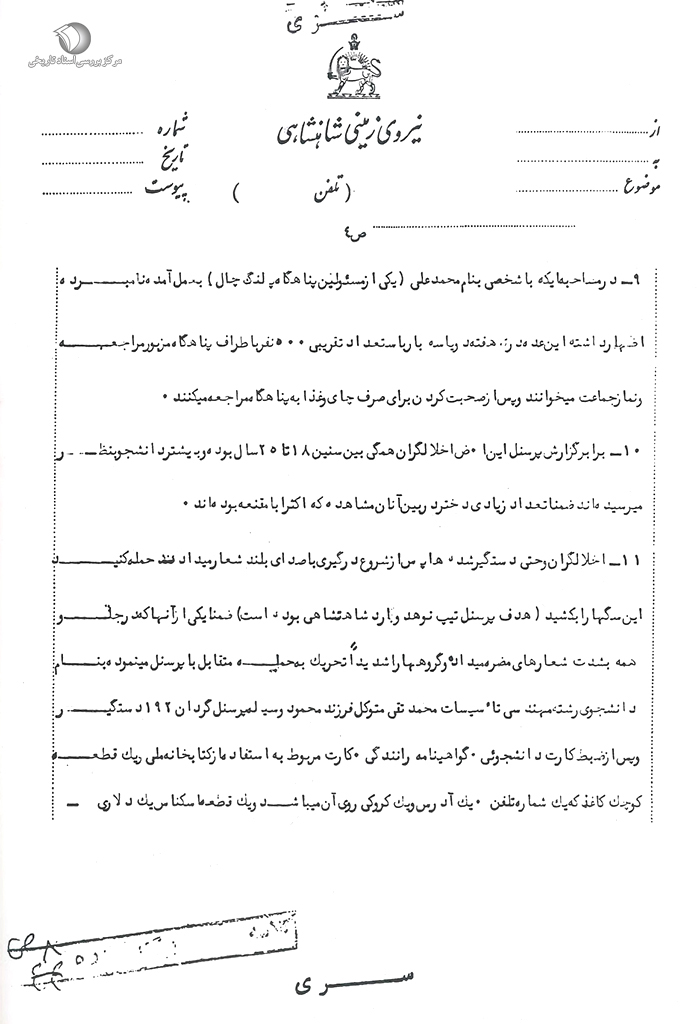 سری
مرکز بررسی اسناد تاریخی
نیروی زمینی شاهنشاهی
از
به
موضوع
شماره
تاریخ
پیوست
( تلفن )
ص٤
۹ـ در مصاحبه ایکه با شخصی بنام محمدعلی (یکی از مسئولین پناهگاه پلنگ چال) بعمل آمده نامبرده
اظهار داشته این عده در هفته دو یا سه بار با تعداد تقریبی ۵۰۰ نفر باطراف پناهگاه مزبور مراجعه
و نماز جماعت میخوانند و پس از صحبت کردن برای صرف چای و غذا به پناهگاه مراجعه میکنند ۰
۱۰ـ برابر گزارش پرسنل این اخلالگران همگی بین سنین ۱۸ تا ۲۵ سال بوده و بیشتر دانشجو بنظر
میرسیده اند ضمنا تعداد زیادی دختر در بین آنان مشاهده که اکثرا با مقنعه بوده اند ۰
۱۱ـ اخلالگران وحتی دستگیر شده ها پس از شروع درگیری با صدای بلند شعار میدادند حمله کنید
این سگها را بکشید (هدف پرسنل تیپ نوهد گارد شاهنشاهی بوده است) ضمنا یکی از آنها که در جلو
همه بشدت شعارهای مضره میداد و گروهها را شدیداً تحریک به حمله متقابل با پرسنل مینمود بنام
دانشجوی رشته مهندسی تأسیسات محمد تقی متوکل فرزند محمود وسیله پرسنل گردان ۱۹۲ دستگیر
و پس از ضبط کارت دانشجوئی ۰ گواهینامه رانندگی ۰ کارت مربوط به استفاده از کتابخانه ملی و یک قطعه
کوچک کاغذ که یک شماره تلفن ۰ یک آدرس و یک کروکی روی آن میباشد و یک قطعه اسکناس یک دلاری ـ
سری